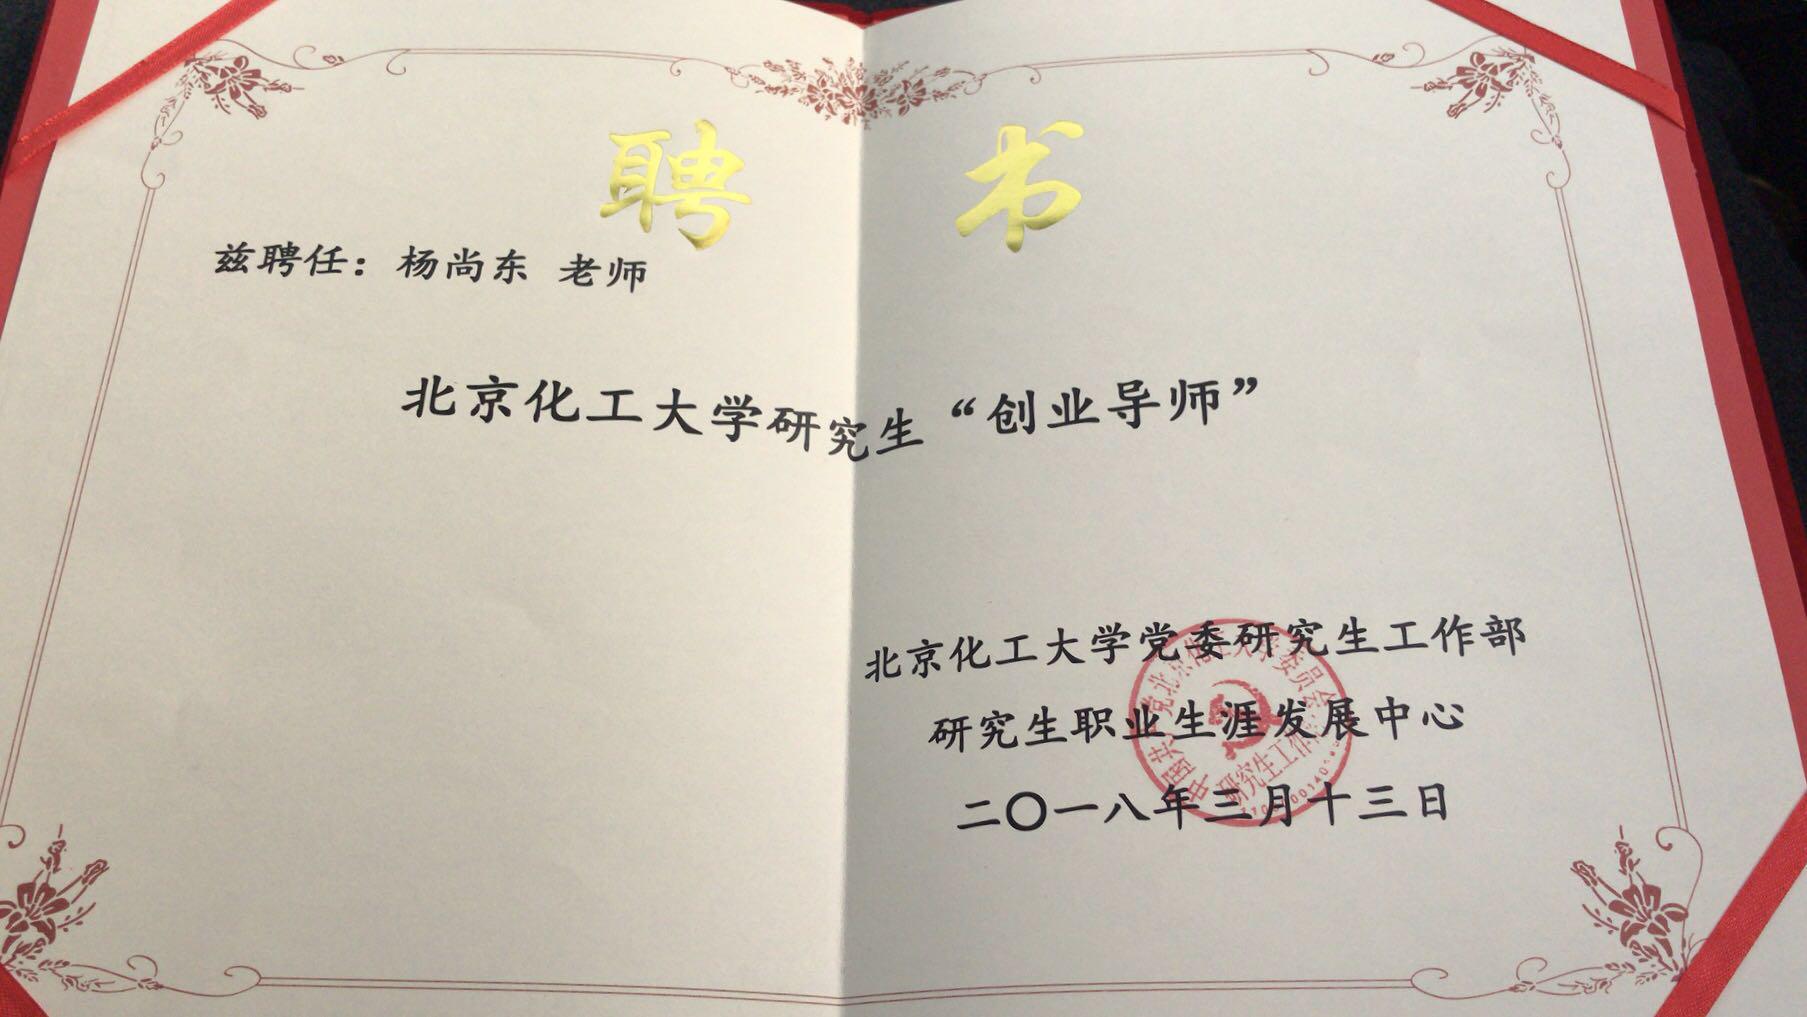 聘 书
兹聘任：杨尚东 老师
北京化工大学研究生“创业导师”
北京化工大学党委研究生工作部
研究生职业生涯发展中心
二〇一八年三月十三日